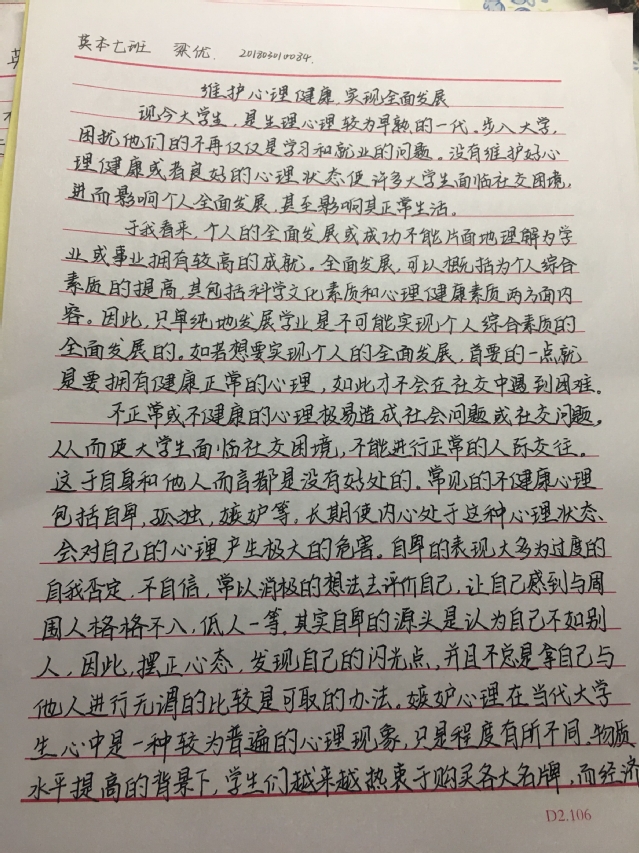 英本七班 梁优. 201803010084.
维护心理健康,实现全面发展
现今大学生,是生理心理较为早熟的一代。步入大学,
困扰他们的不再仅仅是学习和就业的问题。没有维护好心
理健康或者良好的心理状态使许多大学生面临社交困境,
进而影响个人全面发展,甚至影响其正常生活。
于我看来,个人的全面发展或成功不能片面地理解为学
业或事业拥有较高的成就。全面发展,可以概括为个人综合
素质的提高,其包括科学文化素质和心理健康素质两方面内
容。因此,只单纯地发展学业是不可能实现个人综合素质的
全面发展的。如若想要实现个人的全面发展,首要的一点就
是要拥有健康正常的心理,如此才不会在社交中遇到困难。
不正常或不健康的心理极易造成社会问题或社交问题,
从而使大学生面临社交困境,不能进行正常的人际交往。
这于自身和他人而言都是没有好处的。常见的不健康心理
包括自卑,孤独,嫉妒等,长期使内心处于这种心理状态
会对自己的心理产生极大的危害。自卑的表现大多为过度的
自我否定,不自信,常以消极的想法去评价自己,让自己感到与周
围人格格不入,低人一等。其实自卑的源头是认为自己不如别
人,因此,摆正心态,发现自己的闪光点,并且不总是拿自己与
他人进行无谓的比较是可取的办法。嫉妒心理在当代大学
生心中是一种较为普遍的心理现象,只是程度有所不同。物质
水平提高的背景下,学生们越来越热衷于购买各大名牌,而经济
D2.106